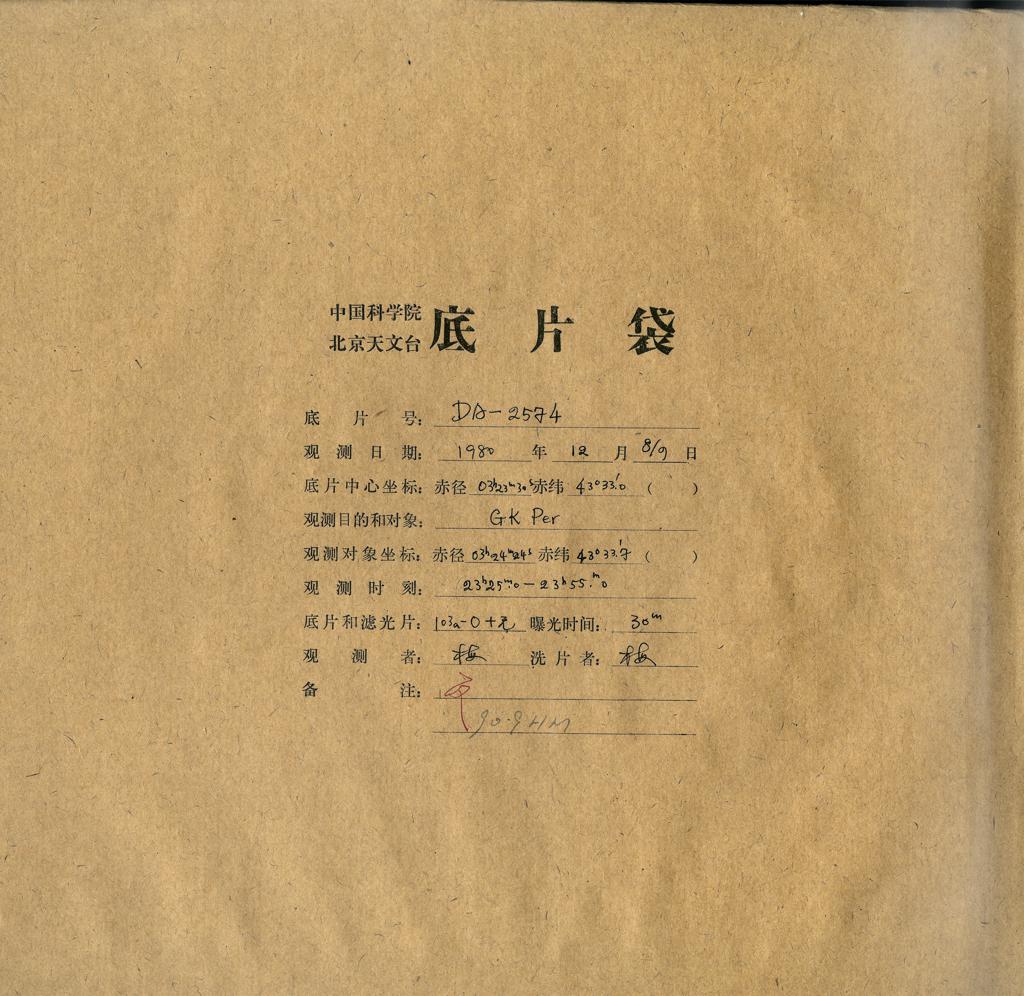 中国科学院
北京天文台
底片袋
底片号: DA-2574
观测日期: 1980 年 12 月 8/9 日
底片中心坐标: 赤径 03h23m30s 赤纬 43°33'.0 ( )
观测目的和对象: GK Per
观测对象坐标: 赤径 03h24m24s 赤纬 43°33'.7 ( )
观测时刻: 23h25m.0-23h55m.0
底片和滤光片: 103a-O+无 曝光时间: 30m
观测者: 梅 洗片者: 梅
备注:
90.9HM